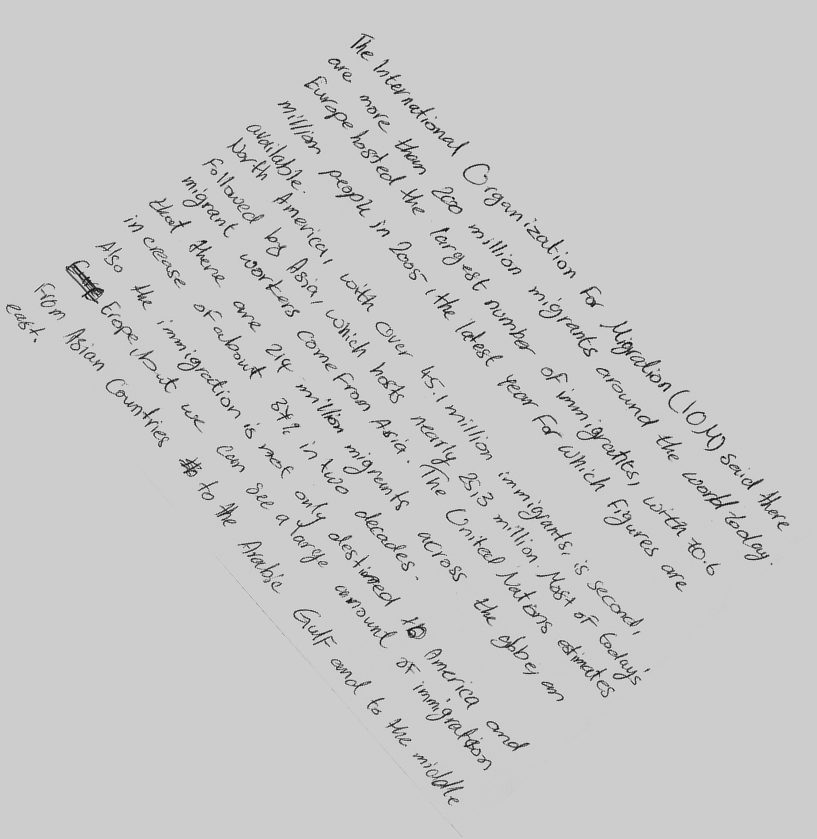 The International Organization For Migration (IOM) said there
are more than 200 million migrants around the world today.
Europe hosted the largest number of immigrants, with 70.6
million people in 2005, the latest year For which Figures are
available.
North America, with over 45.1 million immigrants, is second,
Followed by Asia, which hosts nearly 25.3 million. Most of today's
migrant workers come From Asia. The United Nations estimates
that there are 214 million migrants across the globe, an
increase of about 37% in two decades.
Also the immigration is not only destined to America and
Erope, but we can see a large ammount of immigration
From Asian Countries to the Arabic Gulf and to the middle
east.